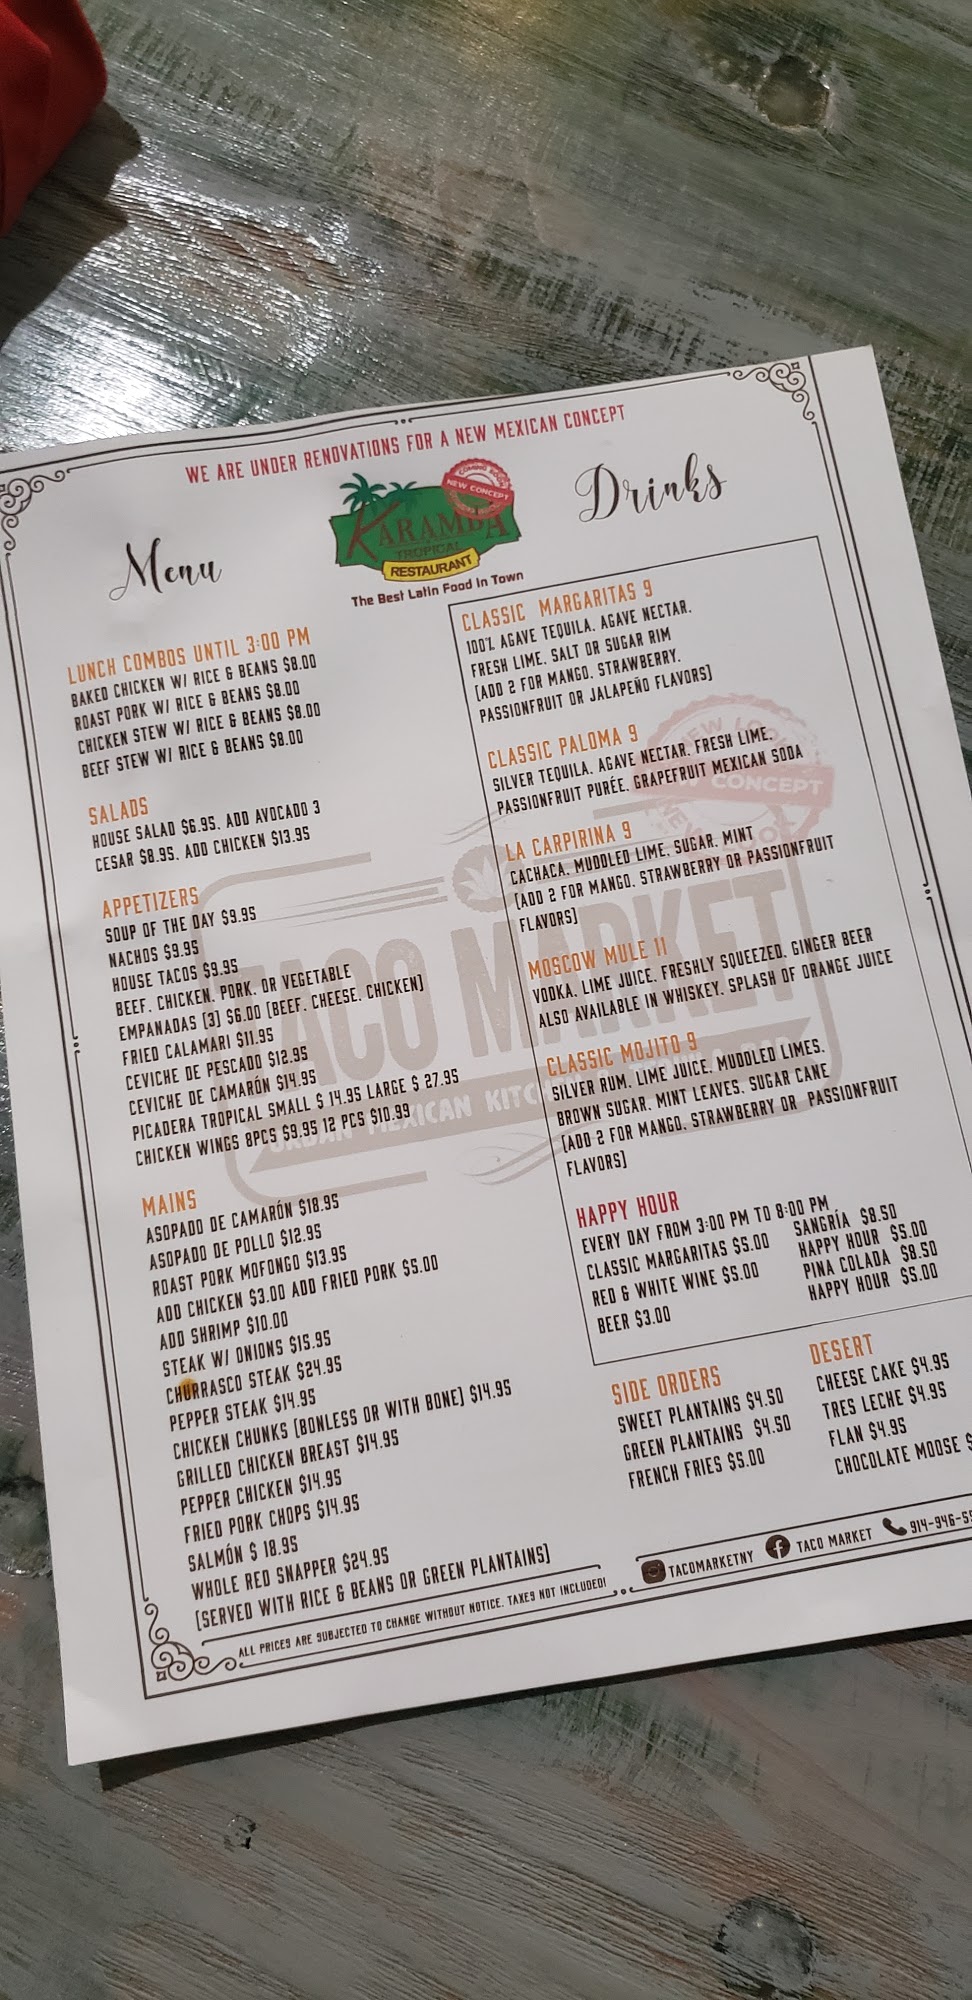 WE ARE UNDER RENOVATIONS FOR A NEW MEXICAN CONCEPT
COMING SOON
NEW CONCEPT
KARAMBA
TROPICAL
RESTAURANT
The Best Latin Food In Town
Menu
LUNCH COMBOS UNTIL 3:00 PM
BAKED CHICKEN W/ RICE & BEANS $8.00
ROAST PORK W/ RICE & BEANS $8.00
CHICKEN STEW W/ RICE & BEANS $8.00
BEEF STEW W/ RICE & BEANS $8.00
SALADS
HOUSE SALAD $6.95. ADD AVOCADO 3
CESAR $8.95. ADD CHICKEN $13.95
APPETIZERS
SOUP OF THE DAY $9.95
NACHOS $9.95
HOUSE TACOS $9.95
BEEF. CHICKEN. PORK. OR VEGETABLE
EMPANADAS [3] $6.00 [BEEF. CHEESE. CHICKEN]
FRIED CALAMARI $11.95
CEVICHE DE PESCADO $12.95
CEVICHE DE CAMARÓN $14.95
PICADERA TROPICAL SMALL $ 14.95 LARGE $ 27.95
CHICKEN WINGS 8PCS $9.95 12 PCS $10.99
MAINS
ASOPADO DE CAMARÓN $18.95
ASOPADO DE POLLO $12.95
ROAST PORK MOFONGO $13.95
ADD CHICKEN $3.00 ADD FRIED PORK $5.00
ADD SHRIMP $10.00
STEAK W/ ONIONS $15.95
CHURRASCO STEAK $24.95
PEPPER STEAK $14.95
CHICKEN CHUNKS [BONLESS OR WITH BONE] $14.95
GRILLED CHICKEN BREAST $14.95
PEPPER CHICKEN $14.95
FRIED PORK CHOPS $14.95
SALMÓN $ 18.95
WHOLE RED SNAPPER $24.95
[SERVED WITH RICE & BEANS OR GREEN PLANTAINS]
Drinks
CLASSIC MARGARITAS 9
100% AGAVE TEQUILA. AGAVE NECTAR.
FRESH LIME. SALT OR SUGAR RIM
[ADD 2 FOR MANGO. STRAWBERRY.
PASSIONFRUIT OR JALAPEÑO FLAVORS]
CLASSIC PALOMA 9
SILVER TEQUILA. AGAVE NECTAR. FRESH LIME.
PASSIONFRUIT PURÉE. GRAPEFRUIT MEXICAN SODA
LA CARPIRINA 9
CACHACA. MUDDLED LIME. SUGAR. MINT
[ADD 2 FOR MANGO. STRAWBERRY OR PASSIONFRUIT
FLAVORS]
MOSCOW MULE 11
VODKA. LIME JUICE. FRESHLY SQUEEZED. GINGER BEER
ALSO AVAILABLE IN WHISKEY. SPLASH OF ORANGE JUICE
CLASSIC MOJITO 9
SILVER RUM. LIME JUICE. MUDDLED LIMES.
BROWN SUGAR. MINT LEAVES. SUGAR CANE
[ADD 2 FOR MANGO. STRAWBERRY OR PASSIONFRUIT
FLAVORS]
HAPPY HOUR
EVERY DAY FROM 3:00 PM TO 8:00 PM
CLASSIC MARGARITAS $5.00
RED & WHITE WINE $5.00
BEER $3.00
SANGRÍA $8.50
HAPPY HOUR $5.00
PINA COLADA $8.50
HAPPY HOUR $5.00
SIDE ORDERS
SWEET PLANTAINS $4.50
GREEN PLANTAINS $4.50
FRENCH FRIES $5.00
DESERT
CHEESE CAKE $4.95
TRES LECHE $4.95
FLAN $4.95
CHOCOLATE MOOSE $
ALL PRICES ARE SUBJECTED TO CHANGE WITHOUT NOTICE. TAXES NOT INCLUDED!
TACOMARKETNY TACO MARKET 914-946-55
NEW LOOK
CONCEPT
NEW LOOK
TACO MARKET
URBAN MEXICAN